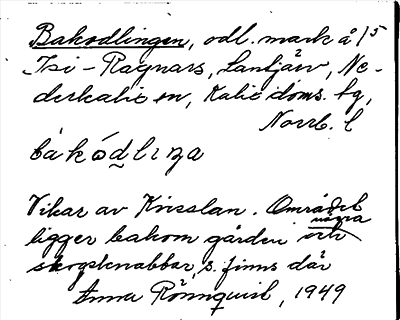 Bakodlingen, odl. mark å 15
Isi-Ragnars, Lantjärv, Ne-
derkalix sn, Kalix doms. fg,
Norrb. l
bakodlıŋa
Vikar av Knisslan. Området
några
ligger bakom gården och
skogsknabbar, s. finns där
Anna Rönnquist, 1949